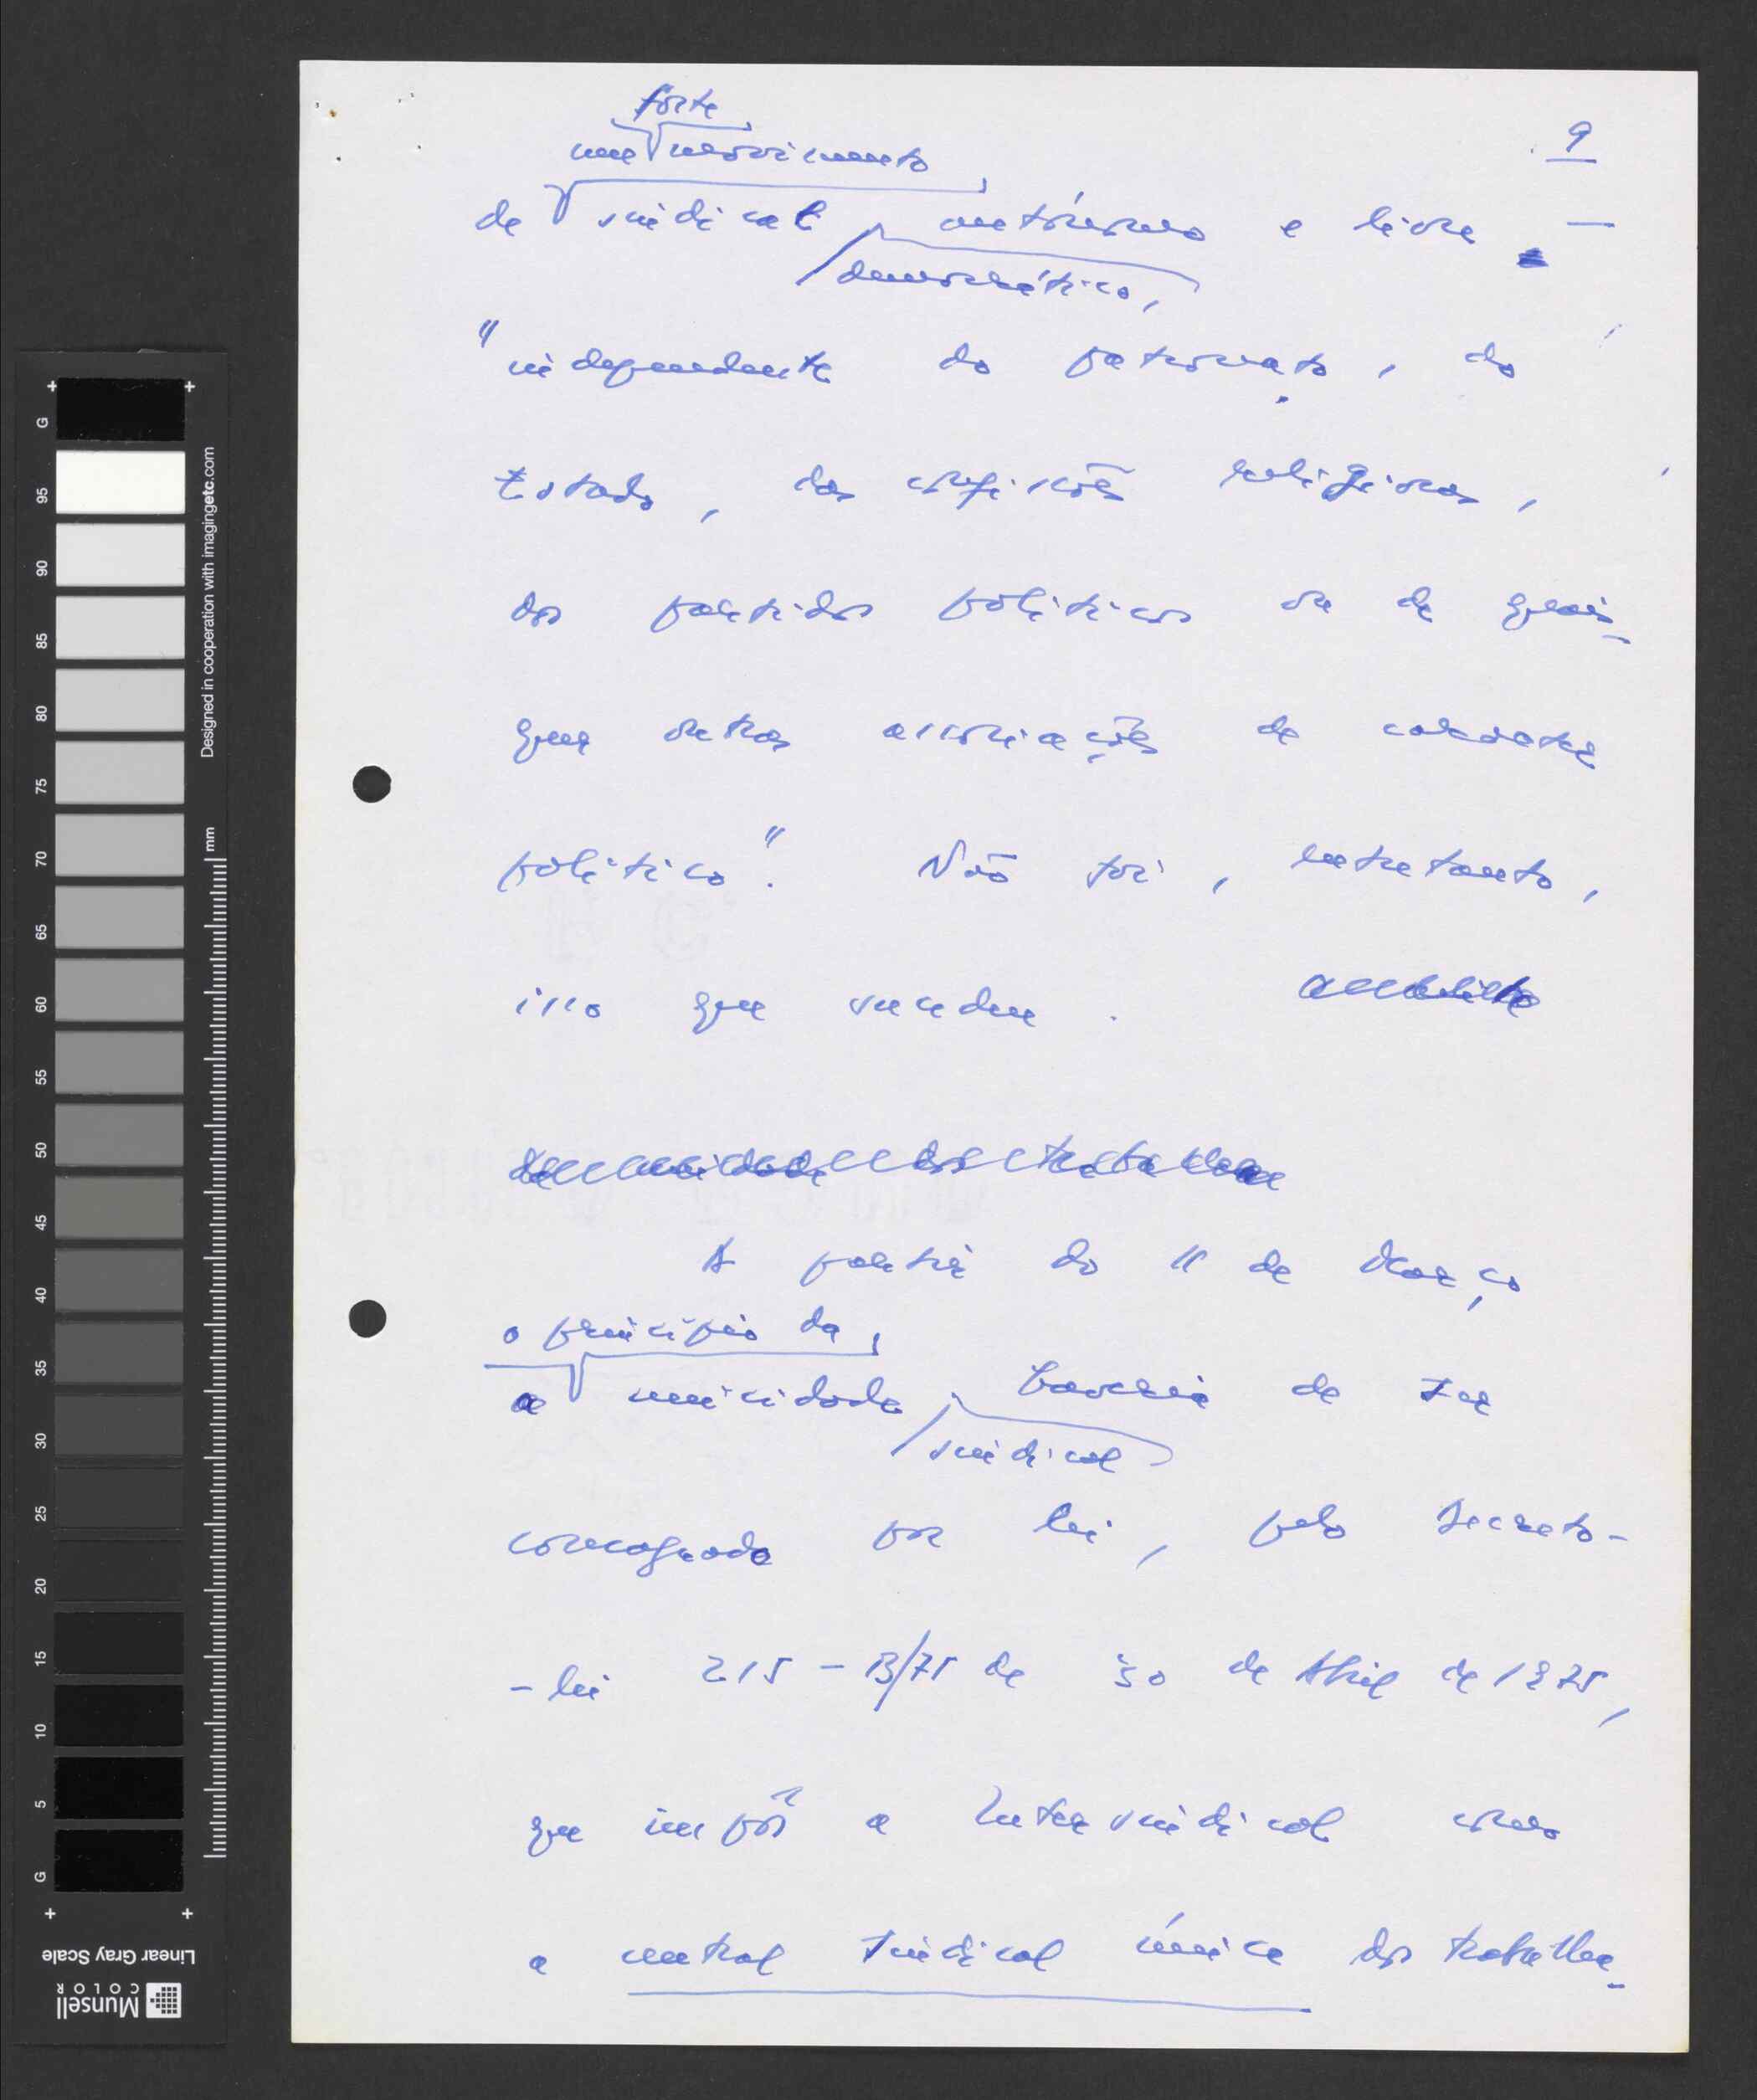 9
forte
um movimento
de sindical autónomo e livre —
democrático,
"independente do patronato, do
Estado, das confissões religiosas,
dos partidos políticos ou de quais-
quer outras associações de carácter
político". Não foi, entretanto,
isso que sucedeu.
de unicidade dos trabalha
A partir do 11 de Março
o princípio da
a unicidade haveria de ser
sindical
consagrado por lei, pelo Decreto-
-lei 215-B/75 de 30 de Abril de 1975,
que impôs a Intersindical como
a central sindical única dos trabalha-
G
95
90
85
80
75
70
65
60
55
50
45
40
35
30
25
20
15
10
5
G
Designed in cooperation with imagingetc.com
mm
Linear Gray Scale
Munsell
COLOR